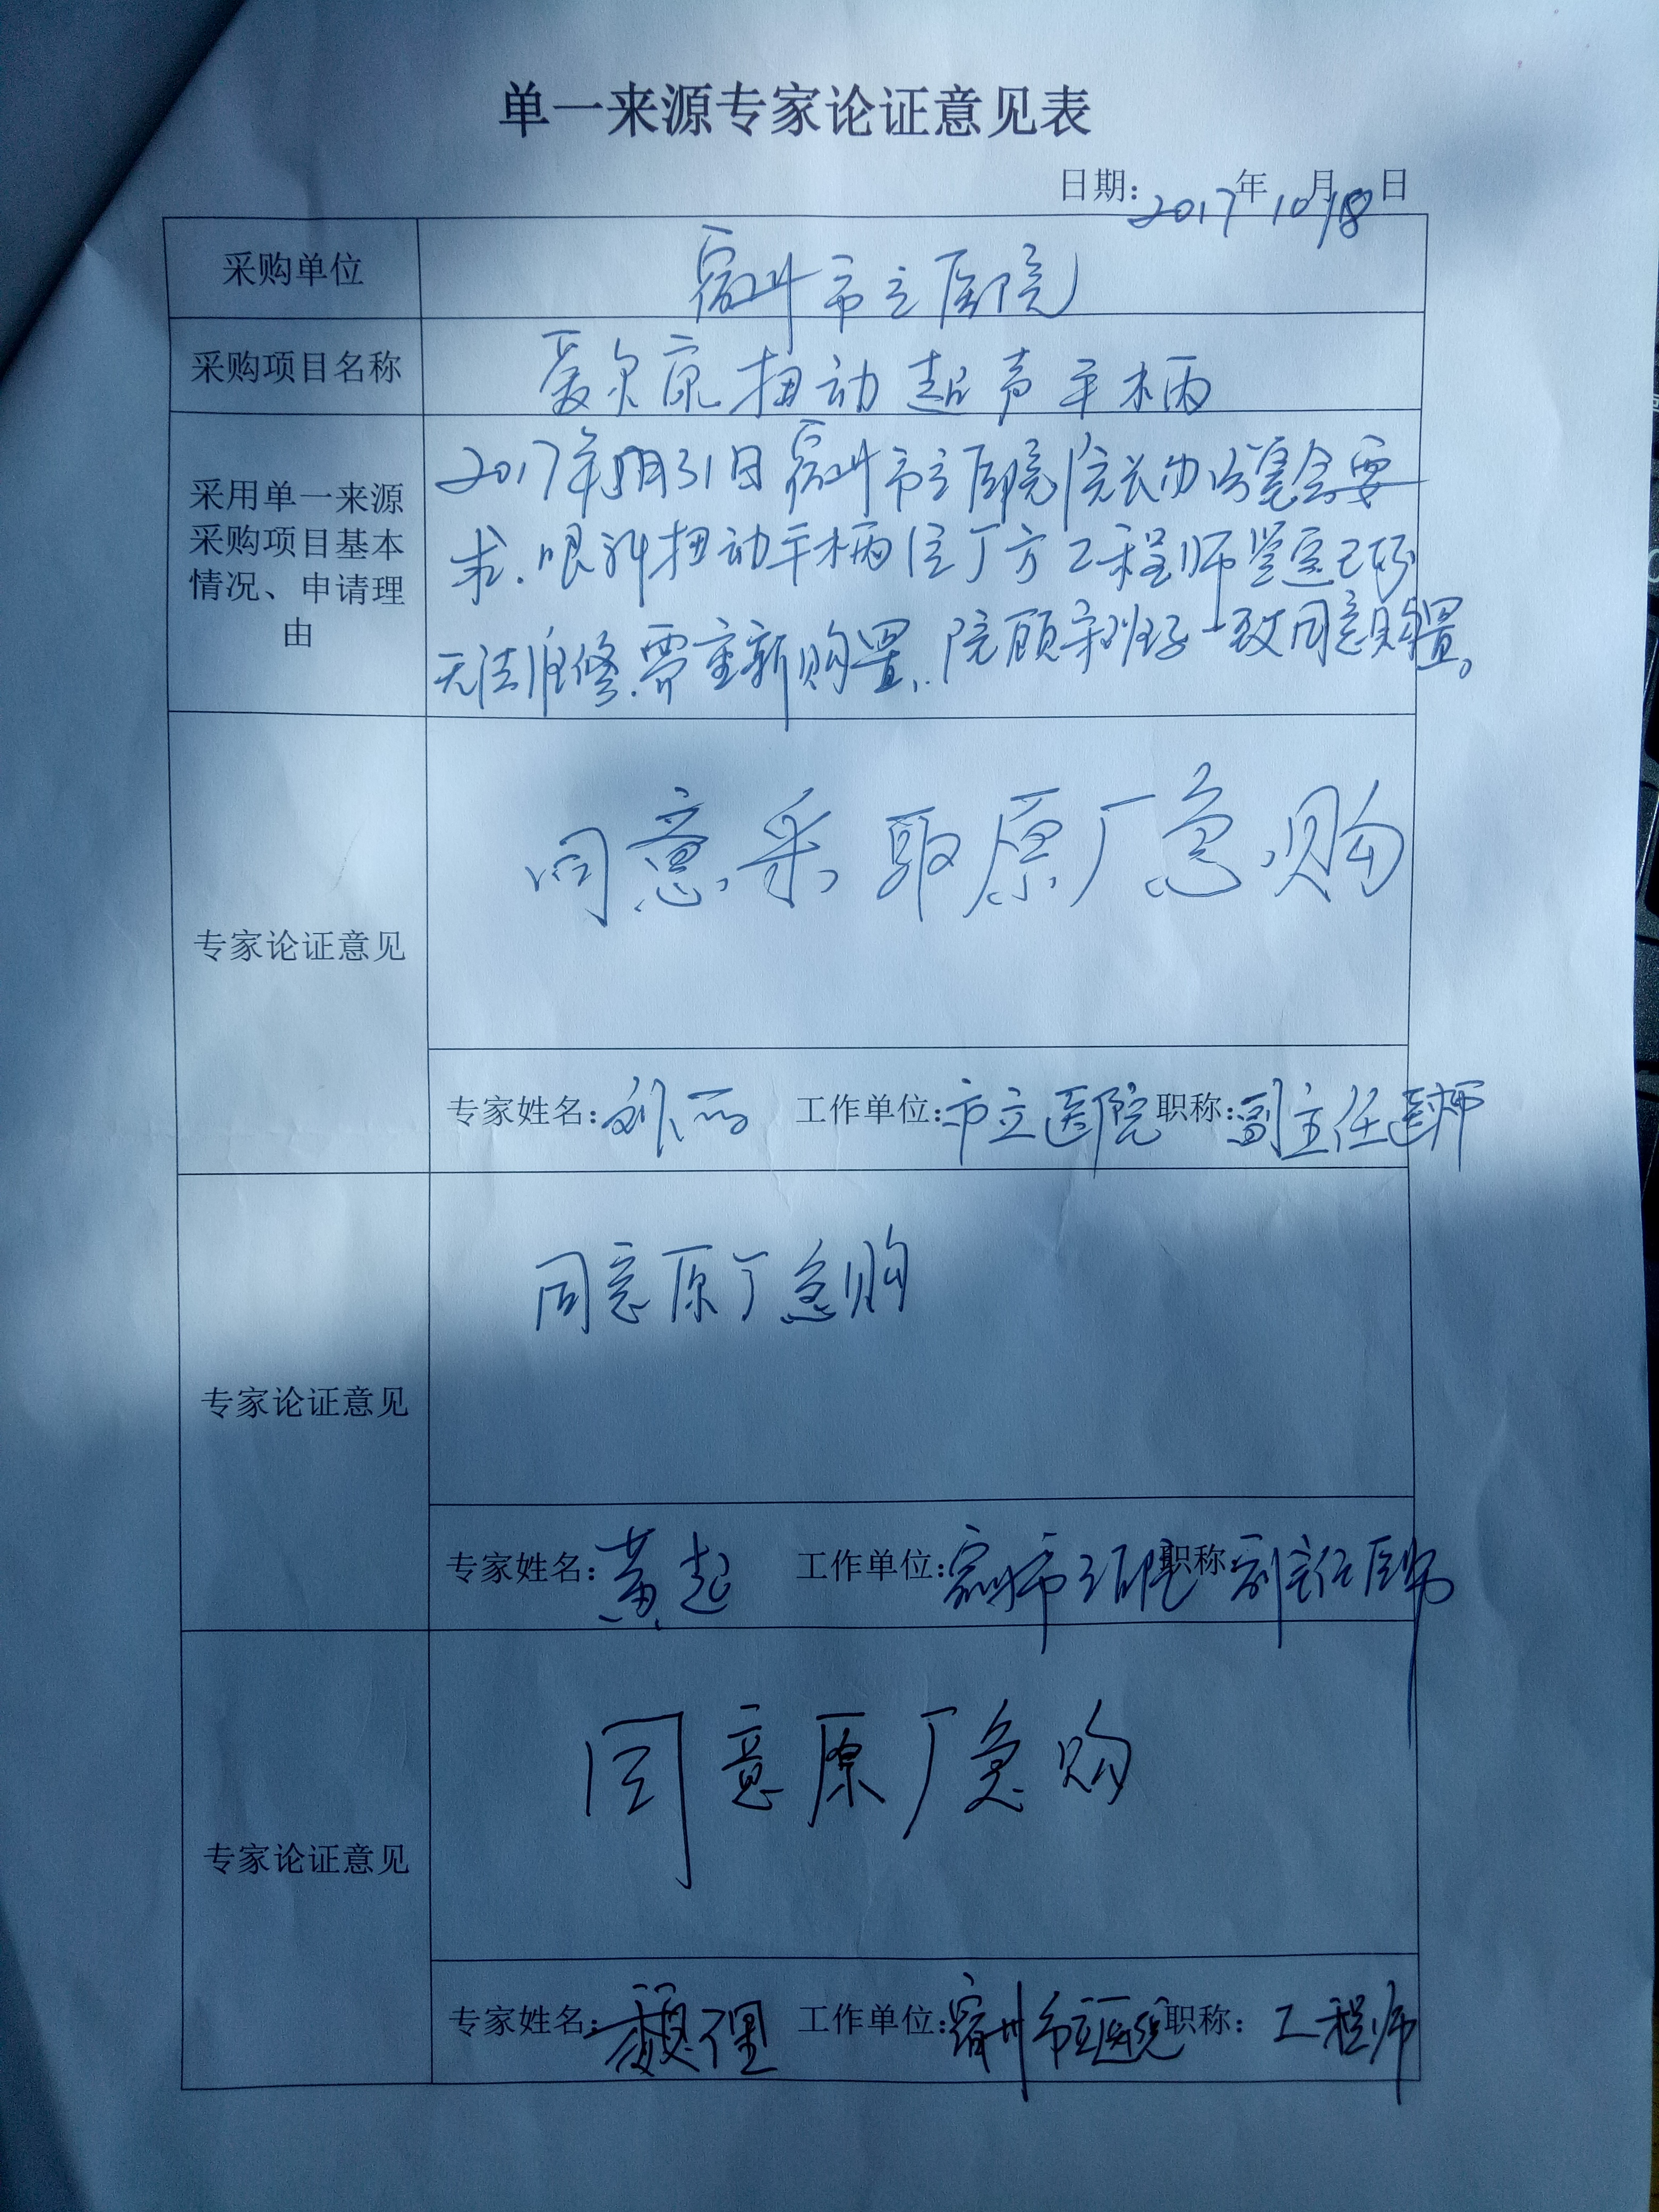 单一来源专家论证意见表
日期：2017年10月18日
采购单位
宿州市立医院
采购项目名称
爱尔康扭动超声手柄
采用单一来源
采购项目基本
情况、申请理
由
2017年8月31日宿州市立医院院长办公会要
求.眼科扭动手柄经厂方工程师鉴定已坏
无法维修.需重新购置,.院领导班子一致同意购置。
专家论证意见
同意采取原厂急购
专家姓名：孙丽 工作单位：市立医院 职称：副主任医师
专家论证意见
同意原厂急购
专家姓名：黄起 工作单位：宿州市立医院 职称 副主任医师
专家论证意见
同意原厂急购
专家姓名： 工作单位：宿州市立医院 职称：工程师